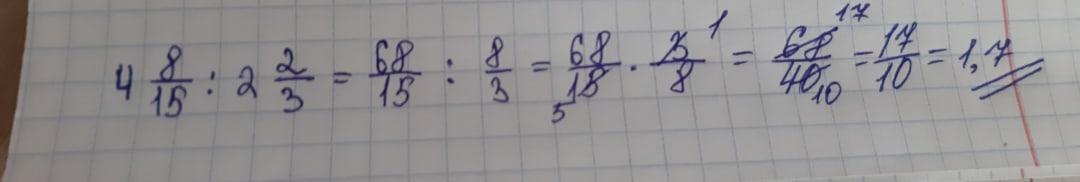 4 8/15 : 2 2/3 = 68/15 : 8/3 = 68/15 5 · 3/8 1 = 68/40 17 10 = 17/10 = 1,7